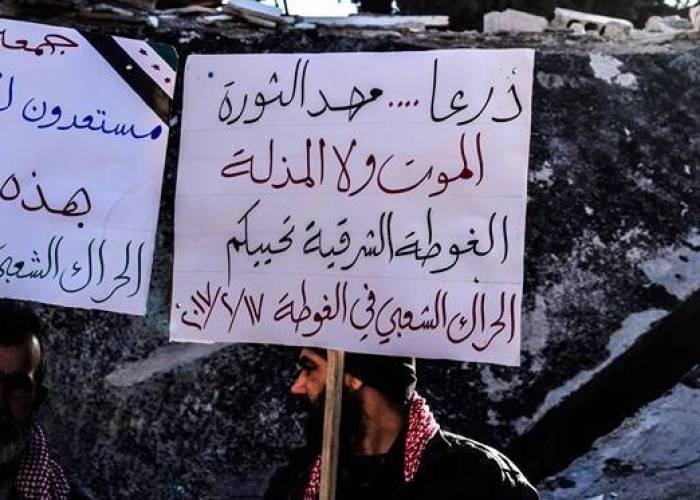 درعا .... مهد الثورة
الموت ولا المذلة
الغوطة الشرقية تحييكم
الحراك الشعبي في الغوطة ٢٠١٧/٢/١٧
جمعة
مستعدون
هذه
الحراك الشعبي